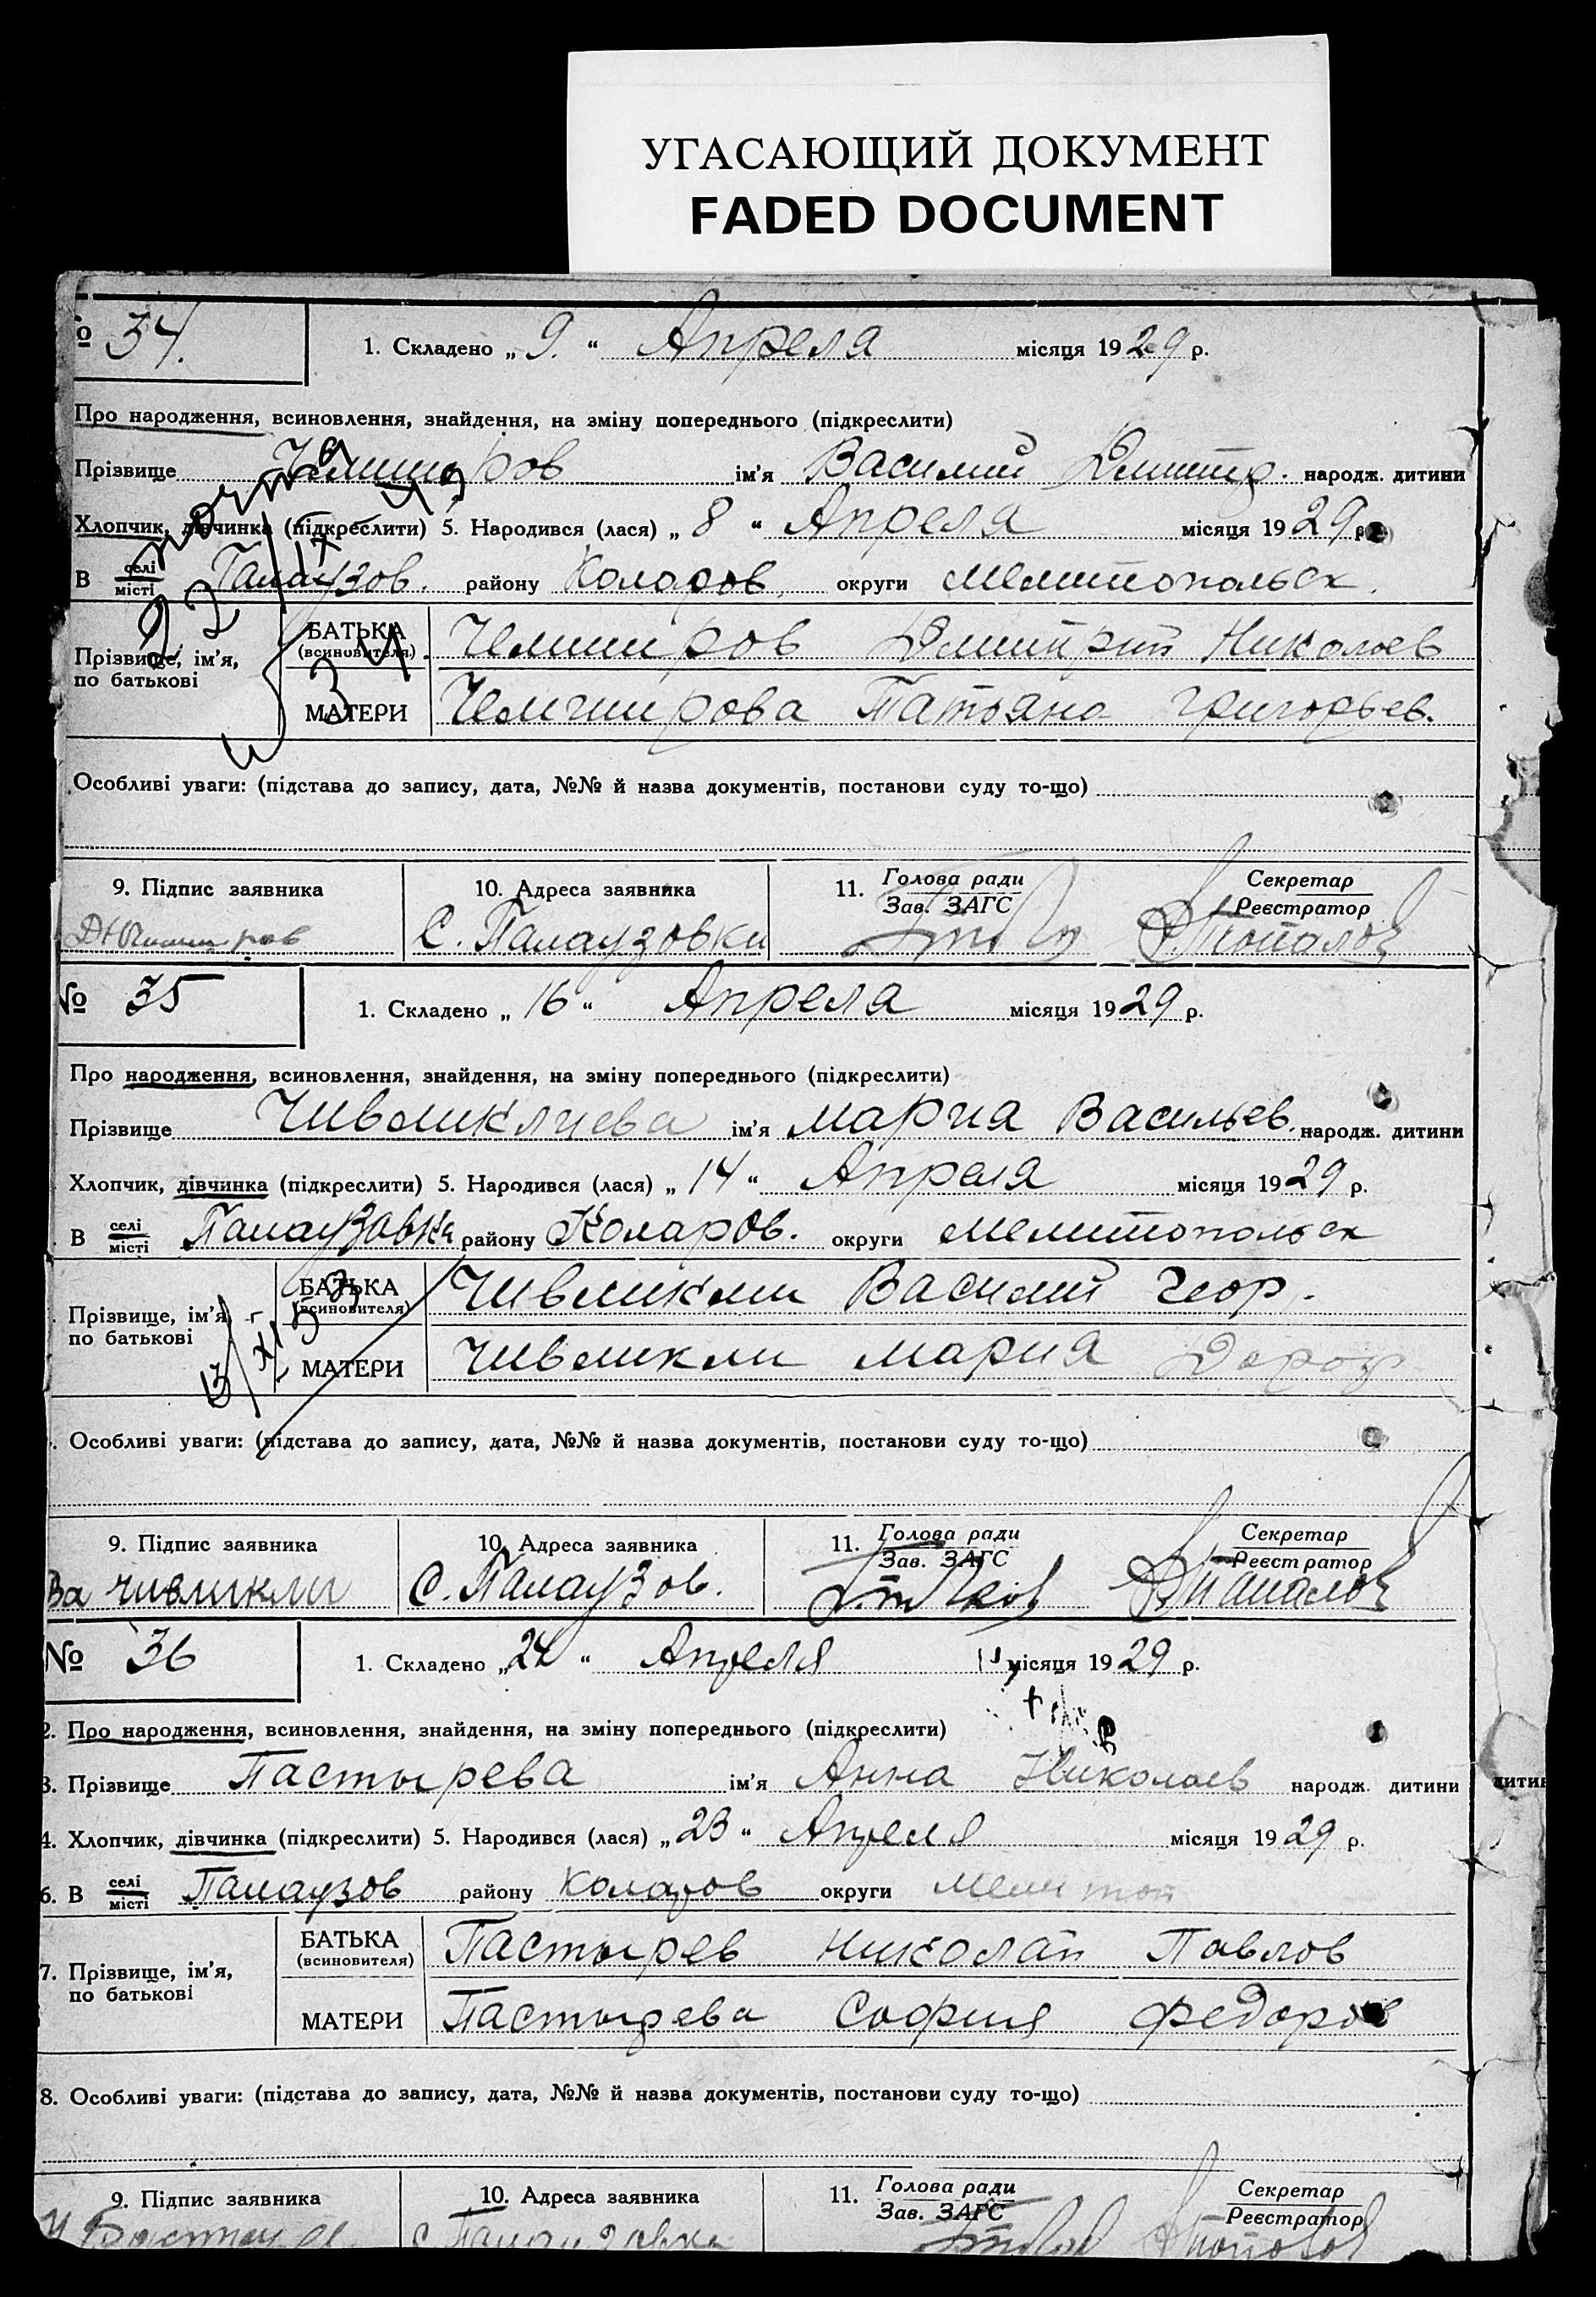 УГАСАЮЩИЙ ДОКУМЕНТ
FADED DOCUMENT
№ 34.
1. Складено „ 9. “ Апреля місяця 1929 р.
Про народження, всиновлення, знайдення, на зміну попереднього (підкреслити)
Прізвище ім'я Василий Дмитр. народж. дитини
Хлопчик, дівчинка (підкреслити) 5. Народився (лася) „ 8 “ Апреля місяця 1929 р.
В селі місті Палаузов. району Коларов. округи Мелитопольск.
Прізвище, ім'я, по батькові
БАТЬКА (всиновителя) Чемширов Дмитрий Николаев
34.
МАТЕРИ Чемширова Татьяна Григорьев.
Особливі уваги: (підстава до запису, дата, №№ й назва документів, постанови суду то-що)
9. Підпис заявника
10. Адреса заявника С. Палаузовки
11. Голова ради Зав. ЗАГС
Секретар Реєстратор Топалов
№ 35
1. Складено „ 16 “ Апреля місяця 1929 р.
Про народження, всиновлення, знайдення, на зміну попереднього (підкреслити)
Прізвище Чивликлиева ім'я Мария Васильев. народж. дитини
Хлопчик, дівчинка (підкреслити) 5. Народився (лася) „ 14 “ Апреля місяця 1929 р.
В селі місті Палаузовка району Коларов. округи Мелитопольск
Прізвище, ім'я, по батькові
БАТЬКА (всиновителя) Чивликли Василий Геор.
МАТЕРИ Чивликли Мария
Особливі уваги: (підстава до запису, дата, №№ й назва документів, постанови суду то-що)
9. Підпис заявника Ва Чивликли
10. Адреса заявника С. Палаузов.
11. Голова ради Зав. ЗАГС
Секретар Реєстратор Топалов
№ 36
1. Складено „ 24 “ Апреля місяця 1929 р.
2. Про народження, всиновлення, знайдення, на зміну попереднього (підкреслити)
3. Прізвище Пастырева ім'я Анна Николаев народж. дитини
4. Хлопчик, дівчинка (підкреслити) 5. Народився (лася) „ 23 “ Апреля місяця 1929 р.
6. В селі місті Палаузов району Коларов округи Мелитоп
7. Прізвище, ім'я, по батькові
БАТЬКА (всиновителя) Пастырев Николай Павлов
МАТЕРИ Пастырева София Федоров
8. Особливі уваги: (підстава до запису, дата, №№ й назва документів, постанови суду то-що)
9. Підпис заявника
10. Адреса заявника с Палаузовка
11. Голова ради Зав. ЗАГС
Секретар Реєстратор Топалов